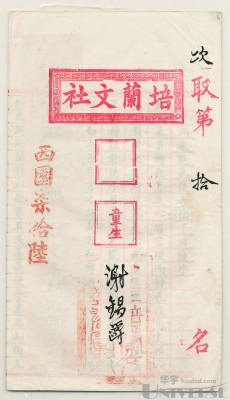 培蘭文社
次取第拾名
童生
謝錫爵
西園柒拾陸
华宇 huabid.com
UNIVERSAL